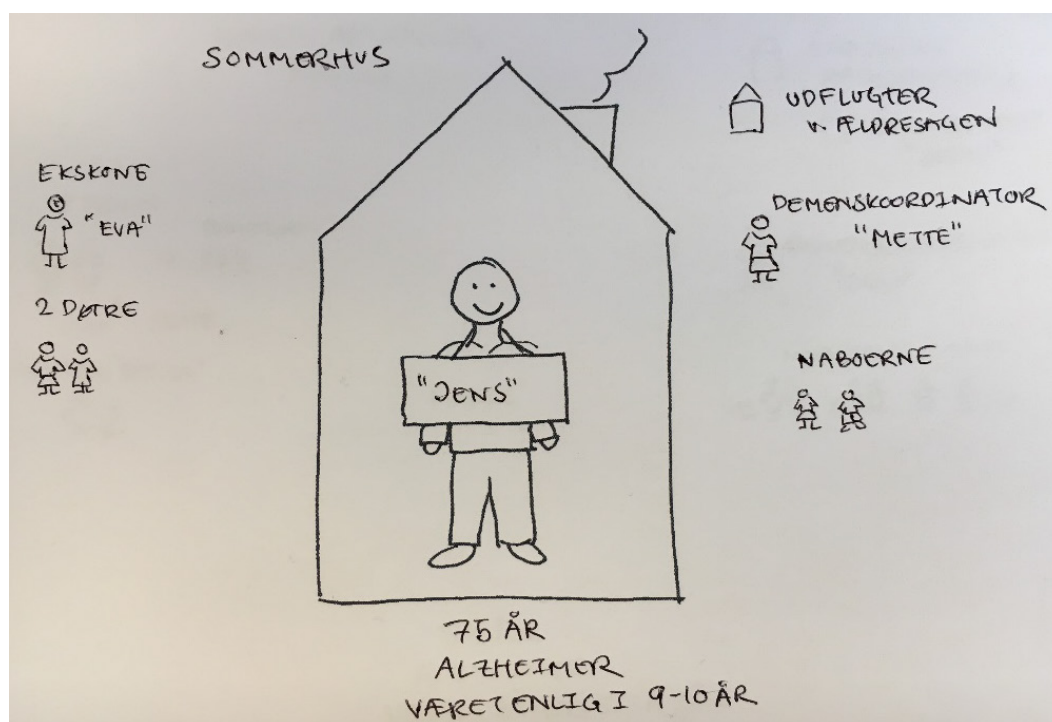 SOMMERHUS
UDFLUGTER
v. ÆLDRESAGEN
EKSKONE
"EVA"
DEMENSKOORDINATOR
"METTE"
2 DØTRE
NABOERNE
"JENS"
75 ÅR
ALZHEIMER
VÆRET ENLIG I 9-10 ÅR